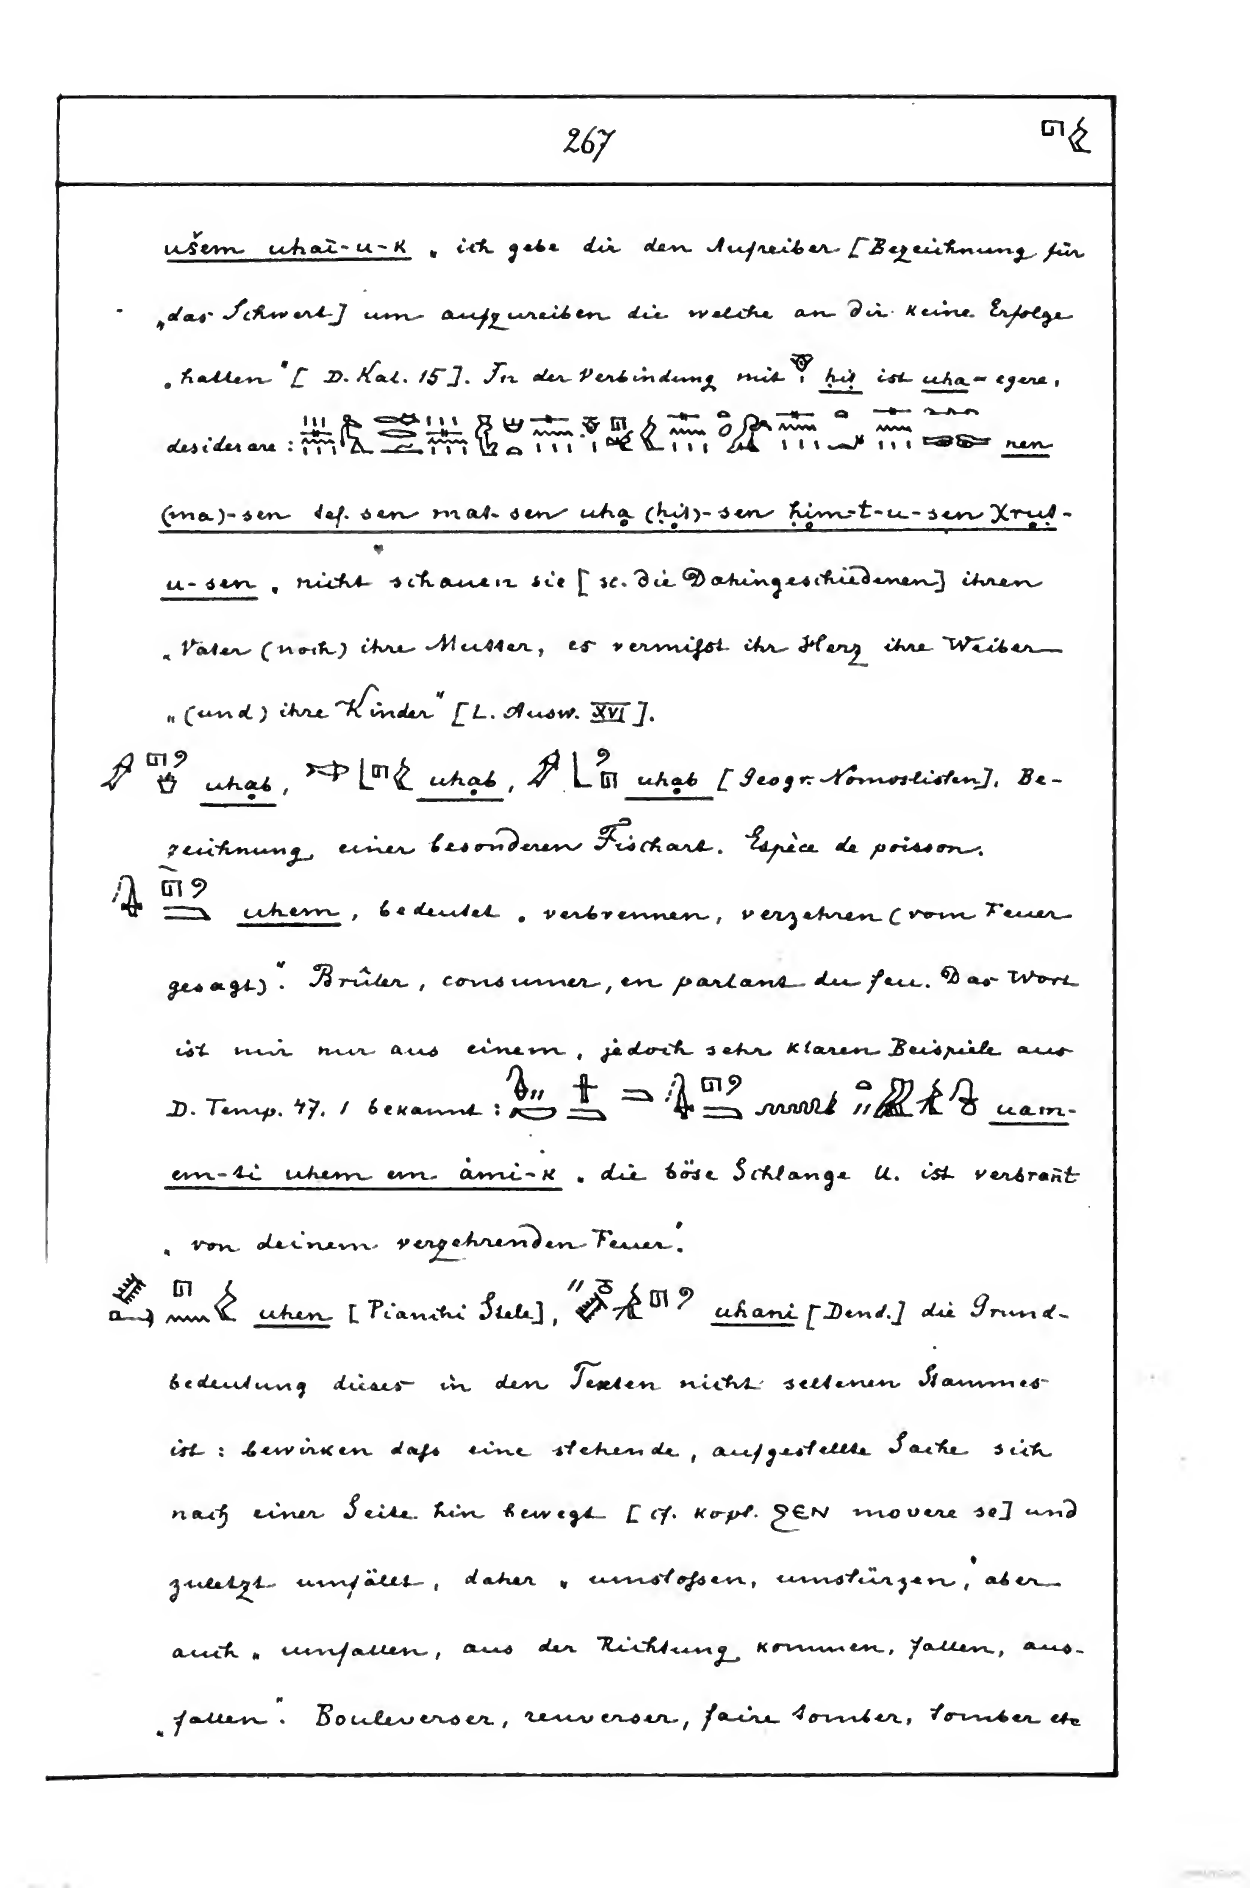 267
ušem uhaī-u-k „ ich gebe dir den Aufreiber [Bezeichnung für
„das Schwert] um aufzureiben die welche an dir keine Erfolge
„hatten" [D. Kal. 15]. In der Verbindung mit ḥiṭ ist uha = egere,
desiderare: nen
(ma)-sen tef-sen mat-sen uhạ (ḥiṭ)-sen ḥim-t-u-sen χruṭ-
u-sen „ nicht schauen sie [sc. die Dahingeschiedenen] ihren
„Vater (noch) ihre Mutter, es vermißt ihr Herz ihre Weiber
„(und) ihre Kinder" [L. Ausw. XVI].
uhạb, uhạb, uhạb [Geogr. Nomoslisten], Be-
zeichnung einer besonderen Fischart. Espèce de poisson.
uhem, bedeutet „ verbrennen, verzehren (vom Feuer
gesagt)". Brûler, consumer, en parlant du feu. Das Wort
ist mir nur aus einem, jedoch sehr klaren Beispiele aus
D. Temp. 47. 1 bekannt: uam-
em-ti uhem em ámi-k „ die böse Schlange U. ist verbrañt
„ von deinem verzehrenden Feuer".
uhen [Pianchi Stele], uhani [Dend.] die Grund-
bedeutung dieses in den Texten nicht seltenen Stammes
ist: bewirken daß eine stehende, aufgestellte Sache sich
nach einer Seite hin bewegt [cf. kopt. ϩⲉⲛ movere se] und
zuletzt umfällt, daher „ umstoßen, umstürzen", aber
auch „ umfallen, aus der Richtung kommen, fallen, aus-
„fallen". Bouleverser, renverser, faire tomber, tomber etc